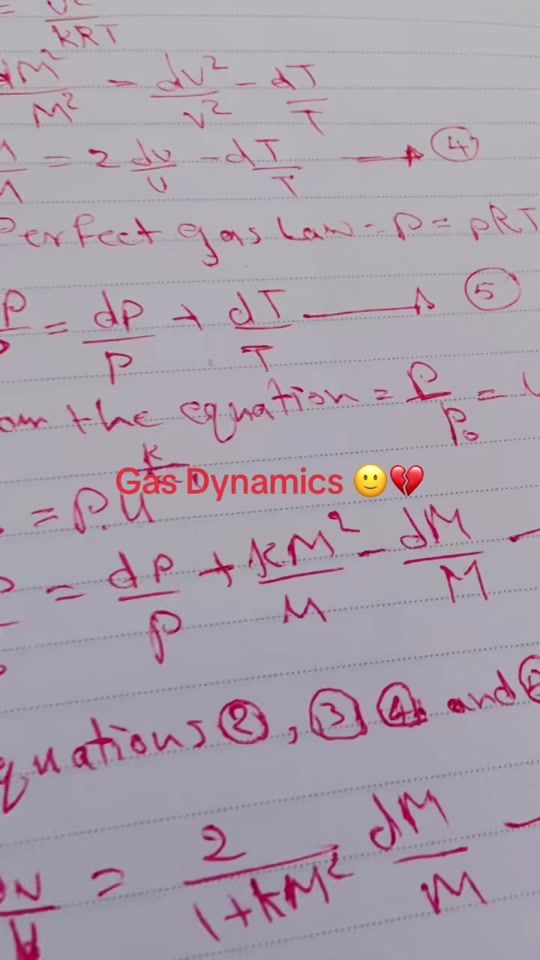 = v²/KRT
dM²/M² = dv²/v² - dT/T
= 2 dv/v - dT/T → ④
Perfect gas Law - P = ρRT
= dρ/ρ + dT/T → ⑤
the equation = P/P₀ =
Gas Dynamics 🙂💔
= dP/P + KM²/M - dM/M -
equations ②, ③ ④ and
dv/v = 2/(1+KM²) dM/M -